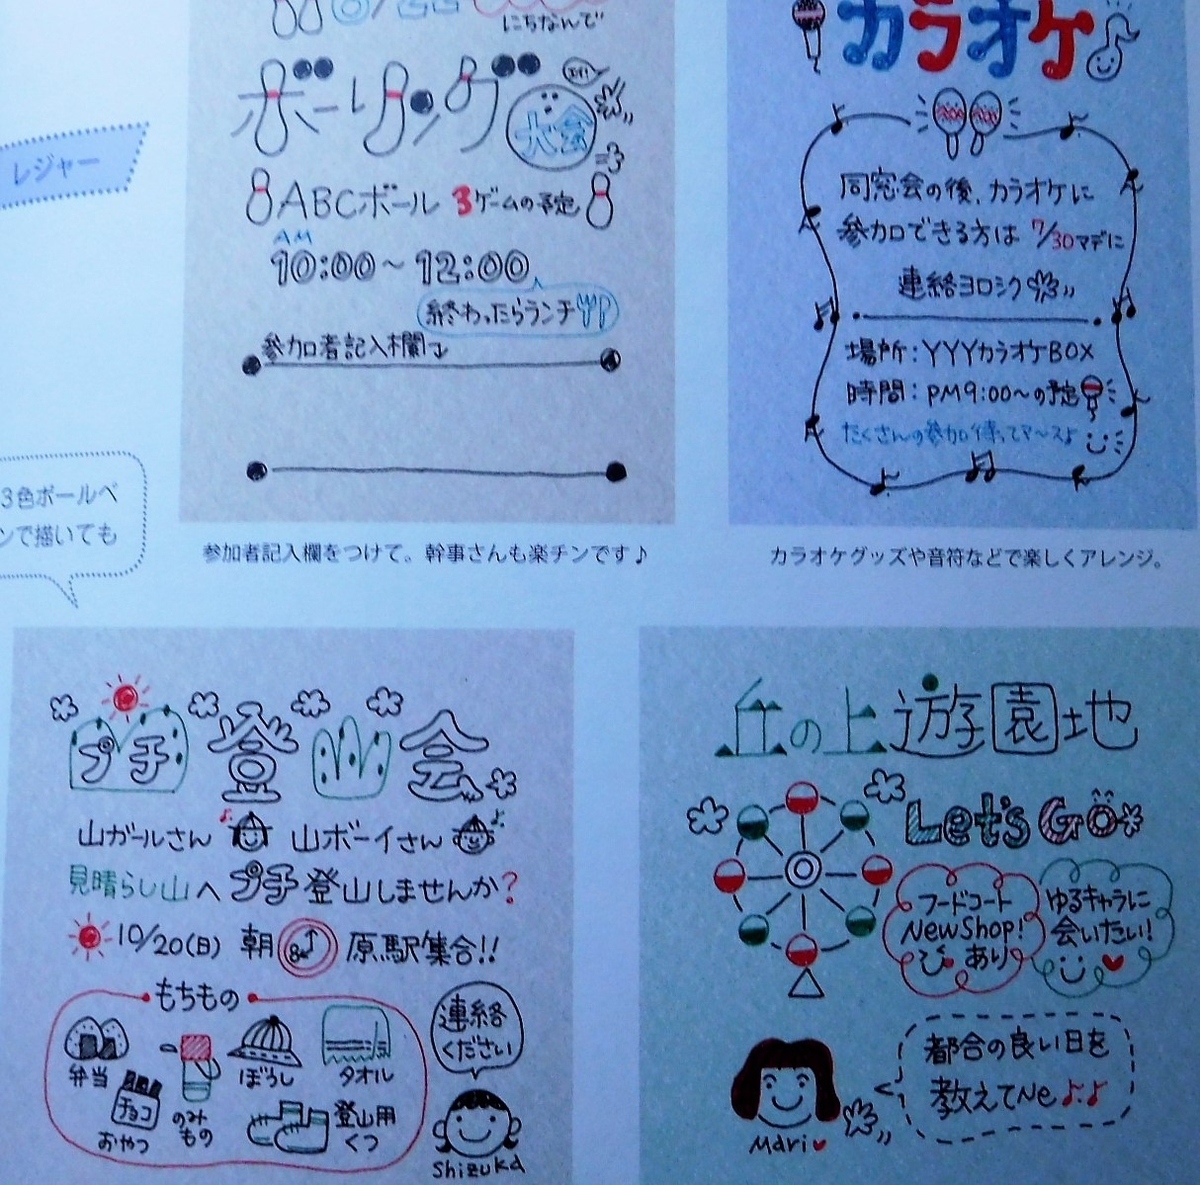 にちなんで
ボーリング
大会
ABCボール 3ゲームの予定
AM
10:00～12:00
終わったらランチ
参加者記入欄
参加者記入欄をつけて。幹事さんも楽チンです♪
カラオケ
同窓会の後、カラオケに
参加できる方は 7/30マデに
連絡ヨロシク
場所：YYYカラオケBOX
時間：PM9:00～の予定
たくさんの参加待ってマ～スよ
カラオケグッズや音符などで楽しくアレンジ。
レジャー
3色ボールペ
ンで描いても
プチ登山会
山ガールさん 山ボーイさん
見晴らし山へプチ登山しませんか？
10/20(日) 朝8 原駅集合!!
もちもの
弁当
チョコ
おやつ
のみ
もの
ぼうし
タオル
登山用
くつ
連絡
ください
Shizuka
丘の上遊園地
Let's Go
フードコート
New Shop!
あり
ゆるキャラに
会いたい!
都合の良い日を
教えてNe♪♪
Mari